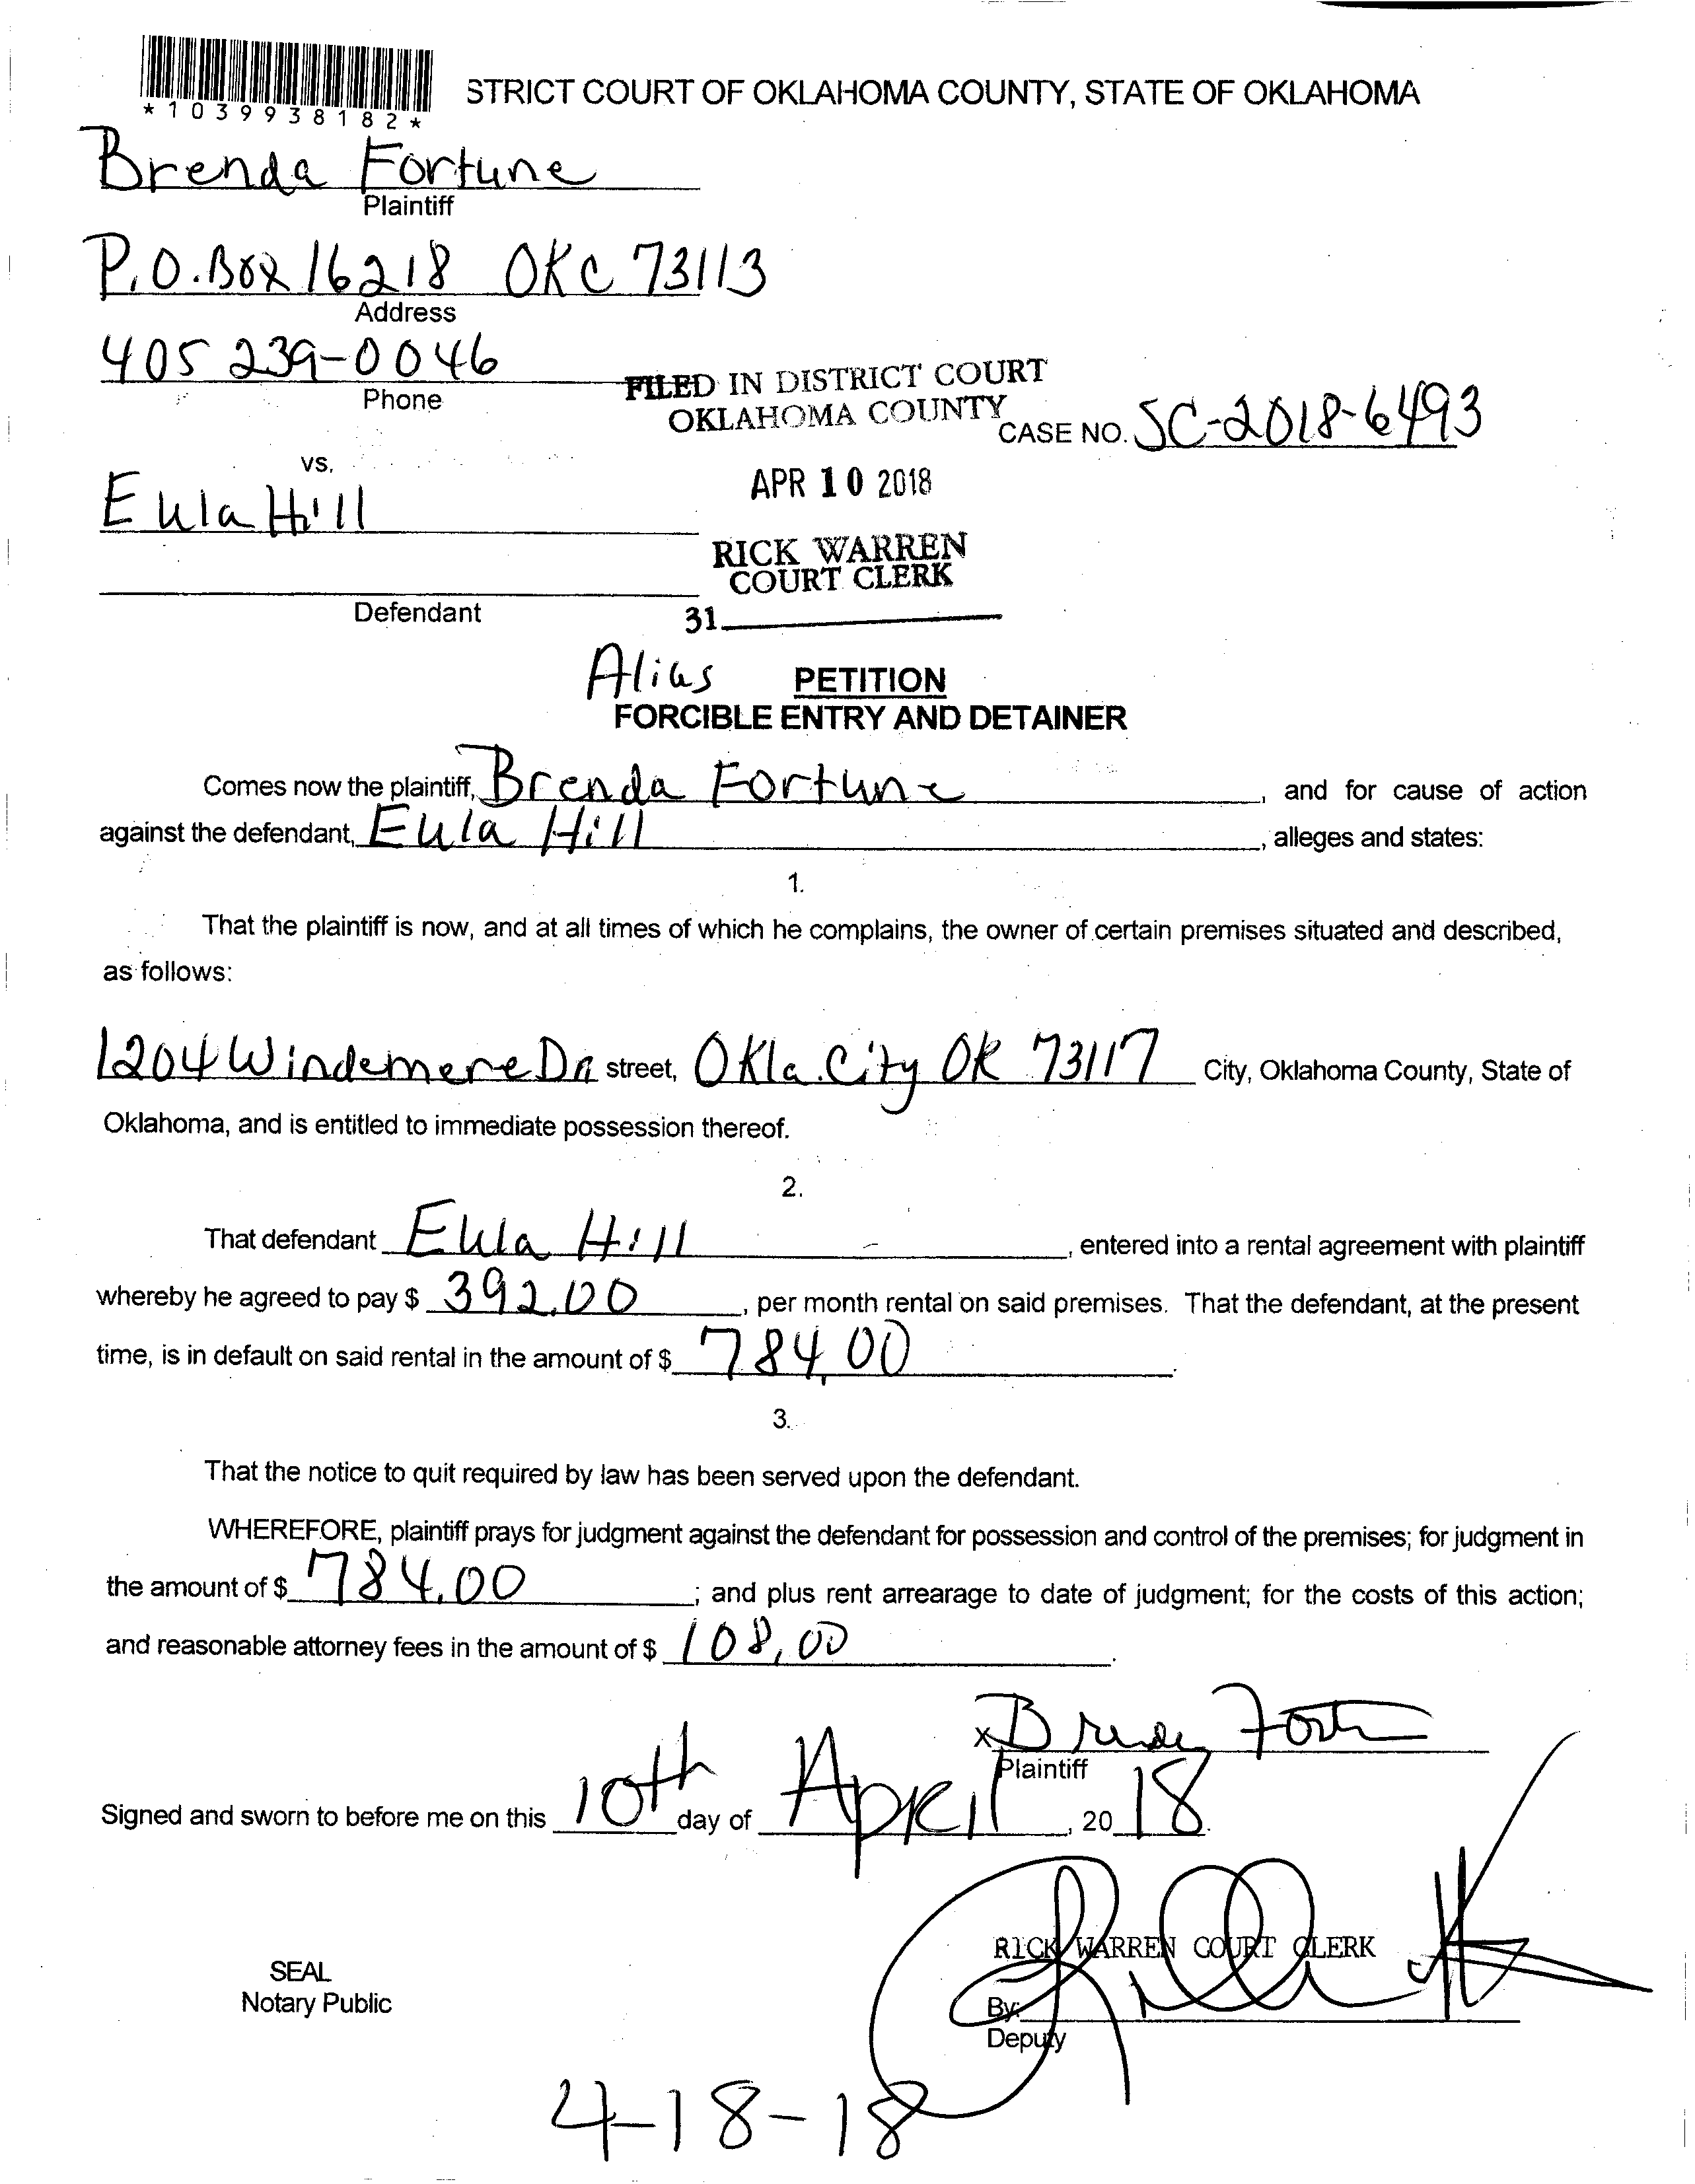 STRICT COURT OF OKLAHOMA COUNTY, STATE OF OKLAHOMA
*1039938182*
Brenda Fortune
Plaintiff
P.O. Box 16218 OKC 73113
Address
405 239-0046
Phone
FILED IN DISTRICT COURT
OKLAHOMA COUNTY
CASE NO. SC-2018-6493
vs.
APR 10 2018
Eula Hill
RICK WARREN
COURT CLERK
Defendant
31
Alias PETITION
FORCIBLE ENTRY AND DETAINER
Comes now the plaintiff, Brenda Fortune, and for cause of action
against the defendant, Eula Hill, alleges and states:
1.
That the plaintiff is now, and at all times of which he complains, the owner of certain premises situated and described,
as follows:
1204 Windemere Dr street, Okla. City OK 73117 City, Oklahoma County, State of
Oklahoma, and is entitled to immediate possession thereof.
2.
That defendant Eula Hill, entered into a rental agreement with plaintiff
whereby he agreed to pay $ 392.00, per month rental on said premises. That the defendant, at the present
time, is in default on said rental in the amount of $ 784.00.
3.
That the notice to quit required by law has been served upon the defendant.
WHEREFORE, plaintiff prays for judgment against the defendant for possession and control of the premises; for judgment in
the amount of $ 784.00; and plus rent arrearage to date of judgment; for the costs of this action;
and reasonable attorney fees in the amount of $ 108.00.
x Brenda Fort
Plaintiff
Signed and sworn to before me on this 10th day of April, 2018.
RICK WARREN COURT CLERK
SEAL
Notary Public
By:
Deputy
4-18-18